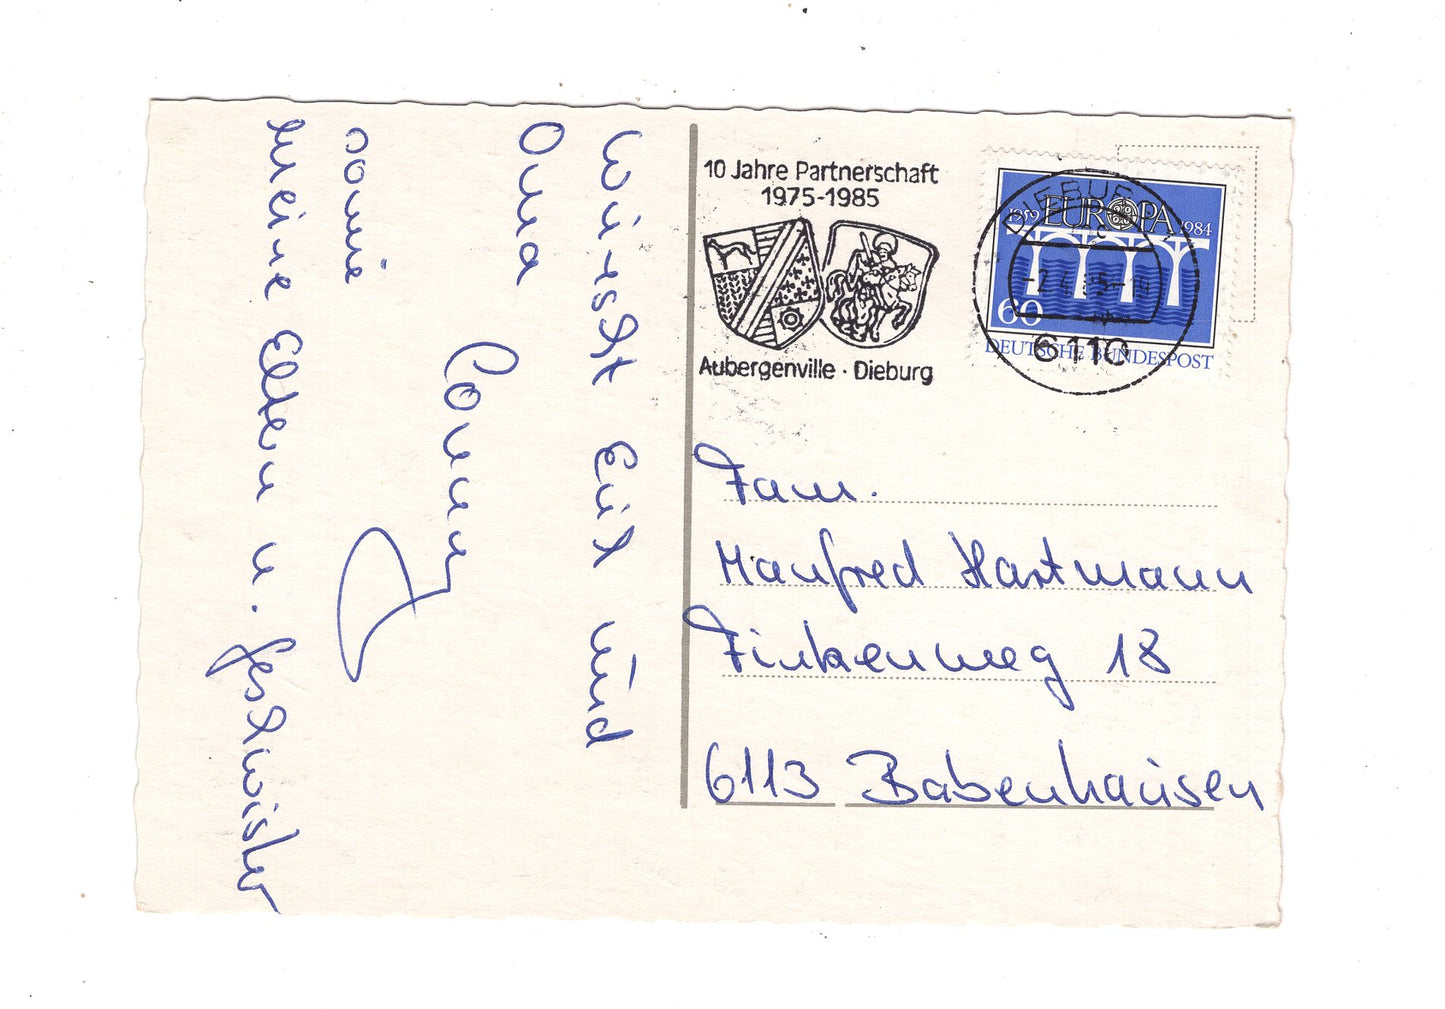 wünscht Euch und
Oma
Conny
sowie
meine Eltern u. Geschwister
10 Jahre Partnerschaft
1975-1985
Aubergenville · Dieburg
DIEBURG 1
-2.4.85-19
6110
1959 EUROPA 1984
60
DEUTSCHE BUNDESPOST
Fam.
Manfred Hartmann
Finkenweg 18
6113 Babenhausen